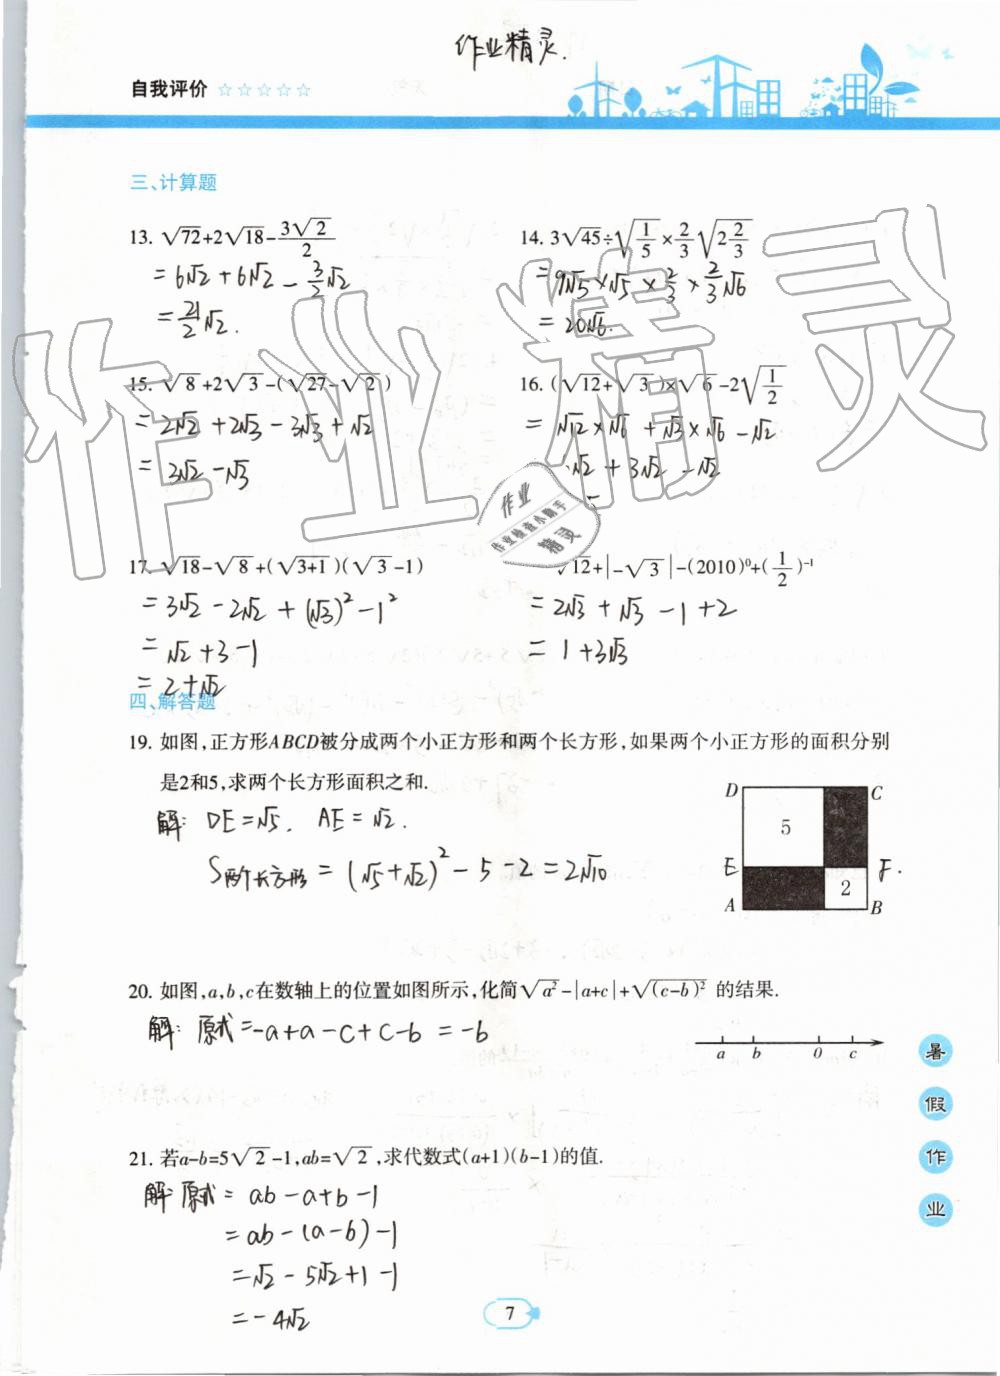 作业精灵.
自我评价 ☆☆☆☆☆
三、计算题
13. √72+2√18-3√2/2
= 6√2 + 6√2 - 3/2√2
= 21/2√2.
14. 3√45÷√(1/5)×2/3√(2 2/3)
= 9√5 × √5 × 2/3 × 2/3√6
= 20√6.
15. √8+2√3-(√27-√2)
= 2√2 + 2√3 - 3√3 + √2
= 3√2 - √3
16. (√12+√3)×√6-2√(1/2)
= √12 × √6 + √3 × √6 - √2
√2 + 3√2 - √2
17. √18-√8+(√3+1)(√3-1)
= 3√2 - 2√2 + (√3)² - 1²
= √2 + 3 - 1
= 2 + √2
√12+|-√3|-(2010)⁰+(1/2)⁻¹
= 2√3 + √3 - 1 + 2
= 1 + 3√3
四、解答题
19. 如图,正方形ABCD被分成两个小正方形和两个长方形,如果两个小正方形的面积分别
是2和5,求两个长方形面积之和.
解: DE=√5. AE=√2.
S两个长方形 = (√5+√2)² - 5 - 2 = 2√10
D C
5
E F.
2
A B
20. 如图,a,b,c在数轴上的位置如图所示,化简√a²-|a+c|+√(c-b)² 的结果.
解: 原式=-a+a-c+c-b = -b
a b 0 c
21. 若a-b=5√2-1,ab=√2,求代数式(a+1)(b-1)的值.
解: 原式= ab - a + b - 1
= ab - (a-b) - 1
= √2 - 5√2 + 1 - 1
= - 4√2
暑
假
作
业
7
作业精灵
作业
作业检查小助手
精灵